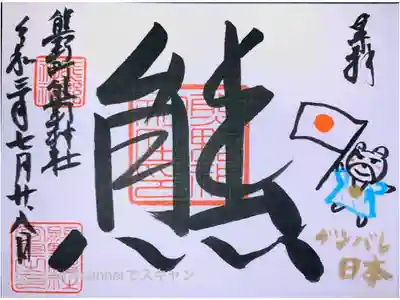 奉拝
熊
ガンバレ
日本
熊野町熊野神社
令和三年七月廿八日
でスキャン